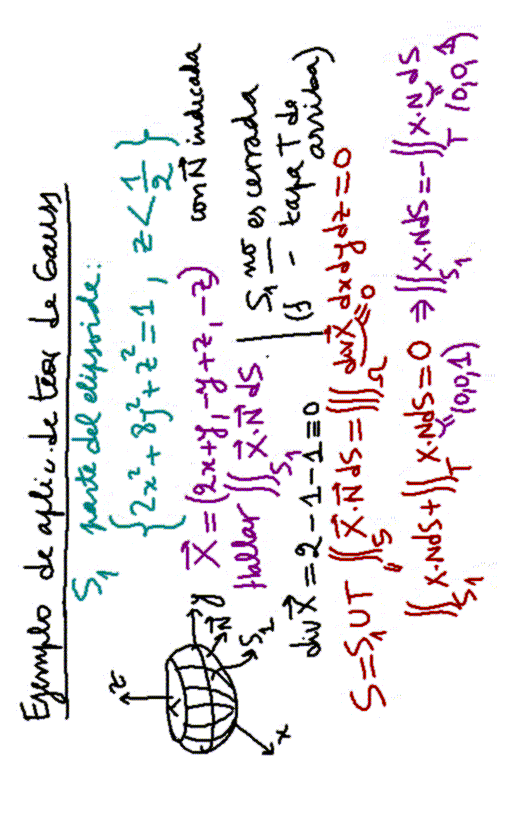 Ejemplo de aplic. de teor de Gauss
S₁ parte del elipsoide:
{2x²+8y²+z²=1, z<1/2}
con N⃗ indicada
X⃗ = (2x+y, -y+z, -z)
Hallar ∬_{S₁} X⃗·N⃗ dS
S₁ no es cerrada
(∄ tapa T de arriba)
z
y
N⃗
S₁
x
div X⃗ = 2-1-1=0
S=S₁UT ∬_S X⃗·N⃗ dS = ∭_Ω div X⃗ dxdydz=0
=0
∬_{S₁} X·NdS+∬_T X·NdS=0 ⇒ ∬_{S₁} X·NdS=-∬_T X·NdS
(0,0,1)
(0,0,1)